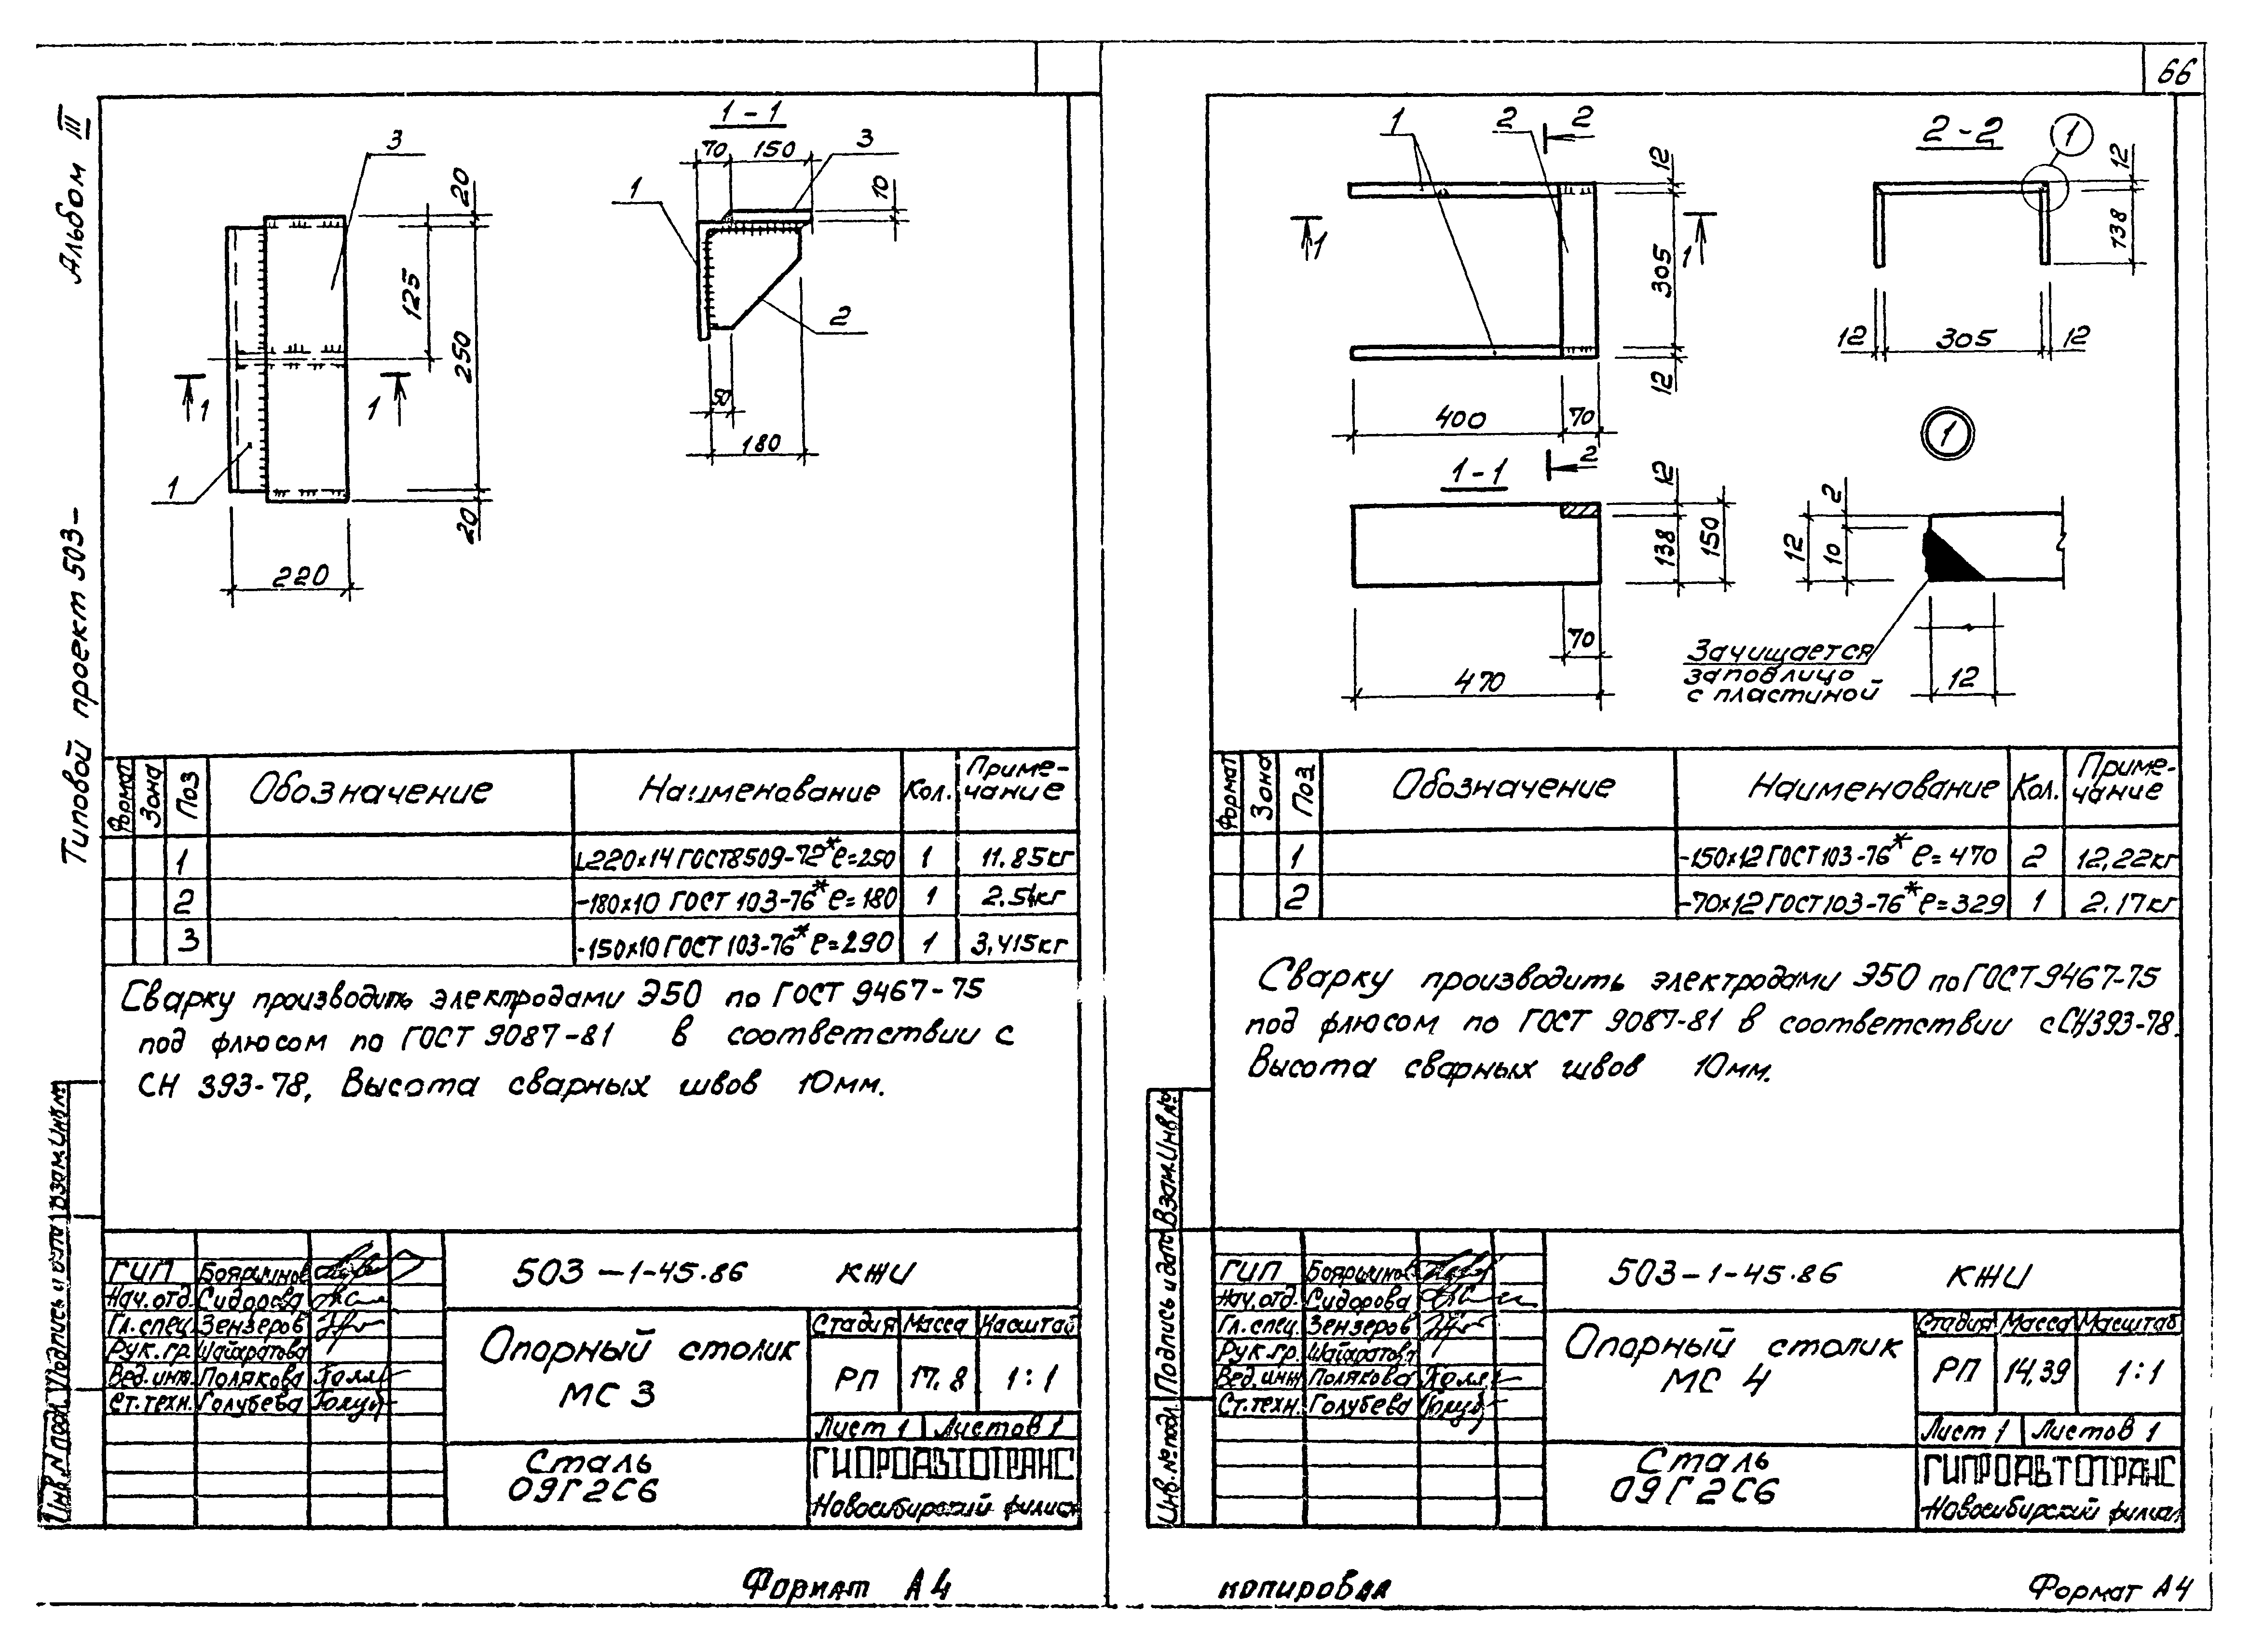 66
Альбом III
Типовой проект 503-
1-1
3
70
150
3
20
10
1
125
250
2
1
1
50
180
1
20
220
Формат
Зона
Поз
Обозначение
Наименование
Кол.
Приме-
чание
1 L220x14 ГОСТ8509-72* ℓ=250 1 11.85кг
2 -180x10 ГОСТ 103-76* ℓ=180 1 2.54кг
3 -150x10 ГОСТ 103-76* ℓ=290 1 3,415кг
Сварку производить электродами Э50 по ГОСТ 9467-75
под флюсом по ГОСТ 9087-81 в соответствии с
СН 393-78. Высота сварных швов 10мм.
Инв.N подл.
Подпись и дата
Взам.Инв.№
503-1-45.86 КЖИ
ГИП Бояршинов
Нач.отд. Сидорова
Гл.спец. Зензеров
Рук.гр. Шайхратова
Вед.инж. Полякова
Ст.техн. Голубева
Опорный столик
МС 3
Стадия Масса Масштаб
РП 17.8 1:1
Лист 1 Листов 1
Сталь
09Г2С6
ГИПРОАВТОТРАНС
Новосибирский филиал
Формат А4
1
2
2
2-2
1
12
12
1
1
305
138
12
12
305
12
400
70
2
1
1-1
12
138
150
2
12
10
70
470
12
Зачищается
заподлицо
с пластиной
Формат
Зона
Поз
Обозначение
Наименование
Кол.
Приме-
чание
1 -150x12 ГОСТ 103-76* ℓ=470 2 12,22кг
2 -70x12 ГОСТ 103-76* ℓ=329 1 2.17кг
Сварку производить электродами Э50 по ГОСТ 9467-75
под флюсом по ГОСТ 9087-81 в соответствии с СН393-78.
Высота сварных швов 10мм.
Инв.№ подл.
Подпись и дата
Взам.Инв.№
503-1-45.86 КЖИ
ГИП Бояршинов
Нач.отд. Сидорова
Гл.спец. Зензеров
Рук.гр. Шайхратова
Вед.инж Полякова
Ст.техн. Голубева
Опорный столик
МС 4
Стадия Масса Масштаб
РП 14,39 1:1
Лист 1 Листов 1
Сталь
09Г2С6
ГИПРОАВТОТРАНС
Новосибирский филиал
копировал
Формат А4